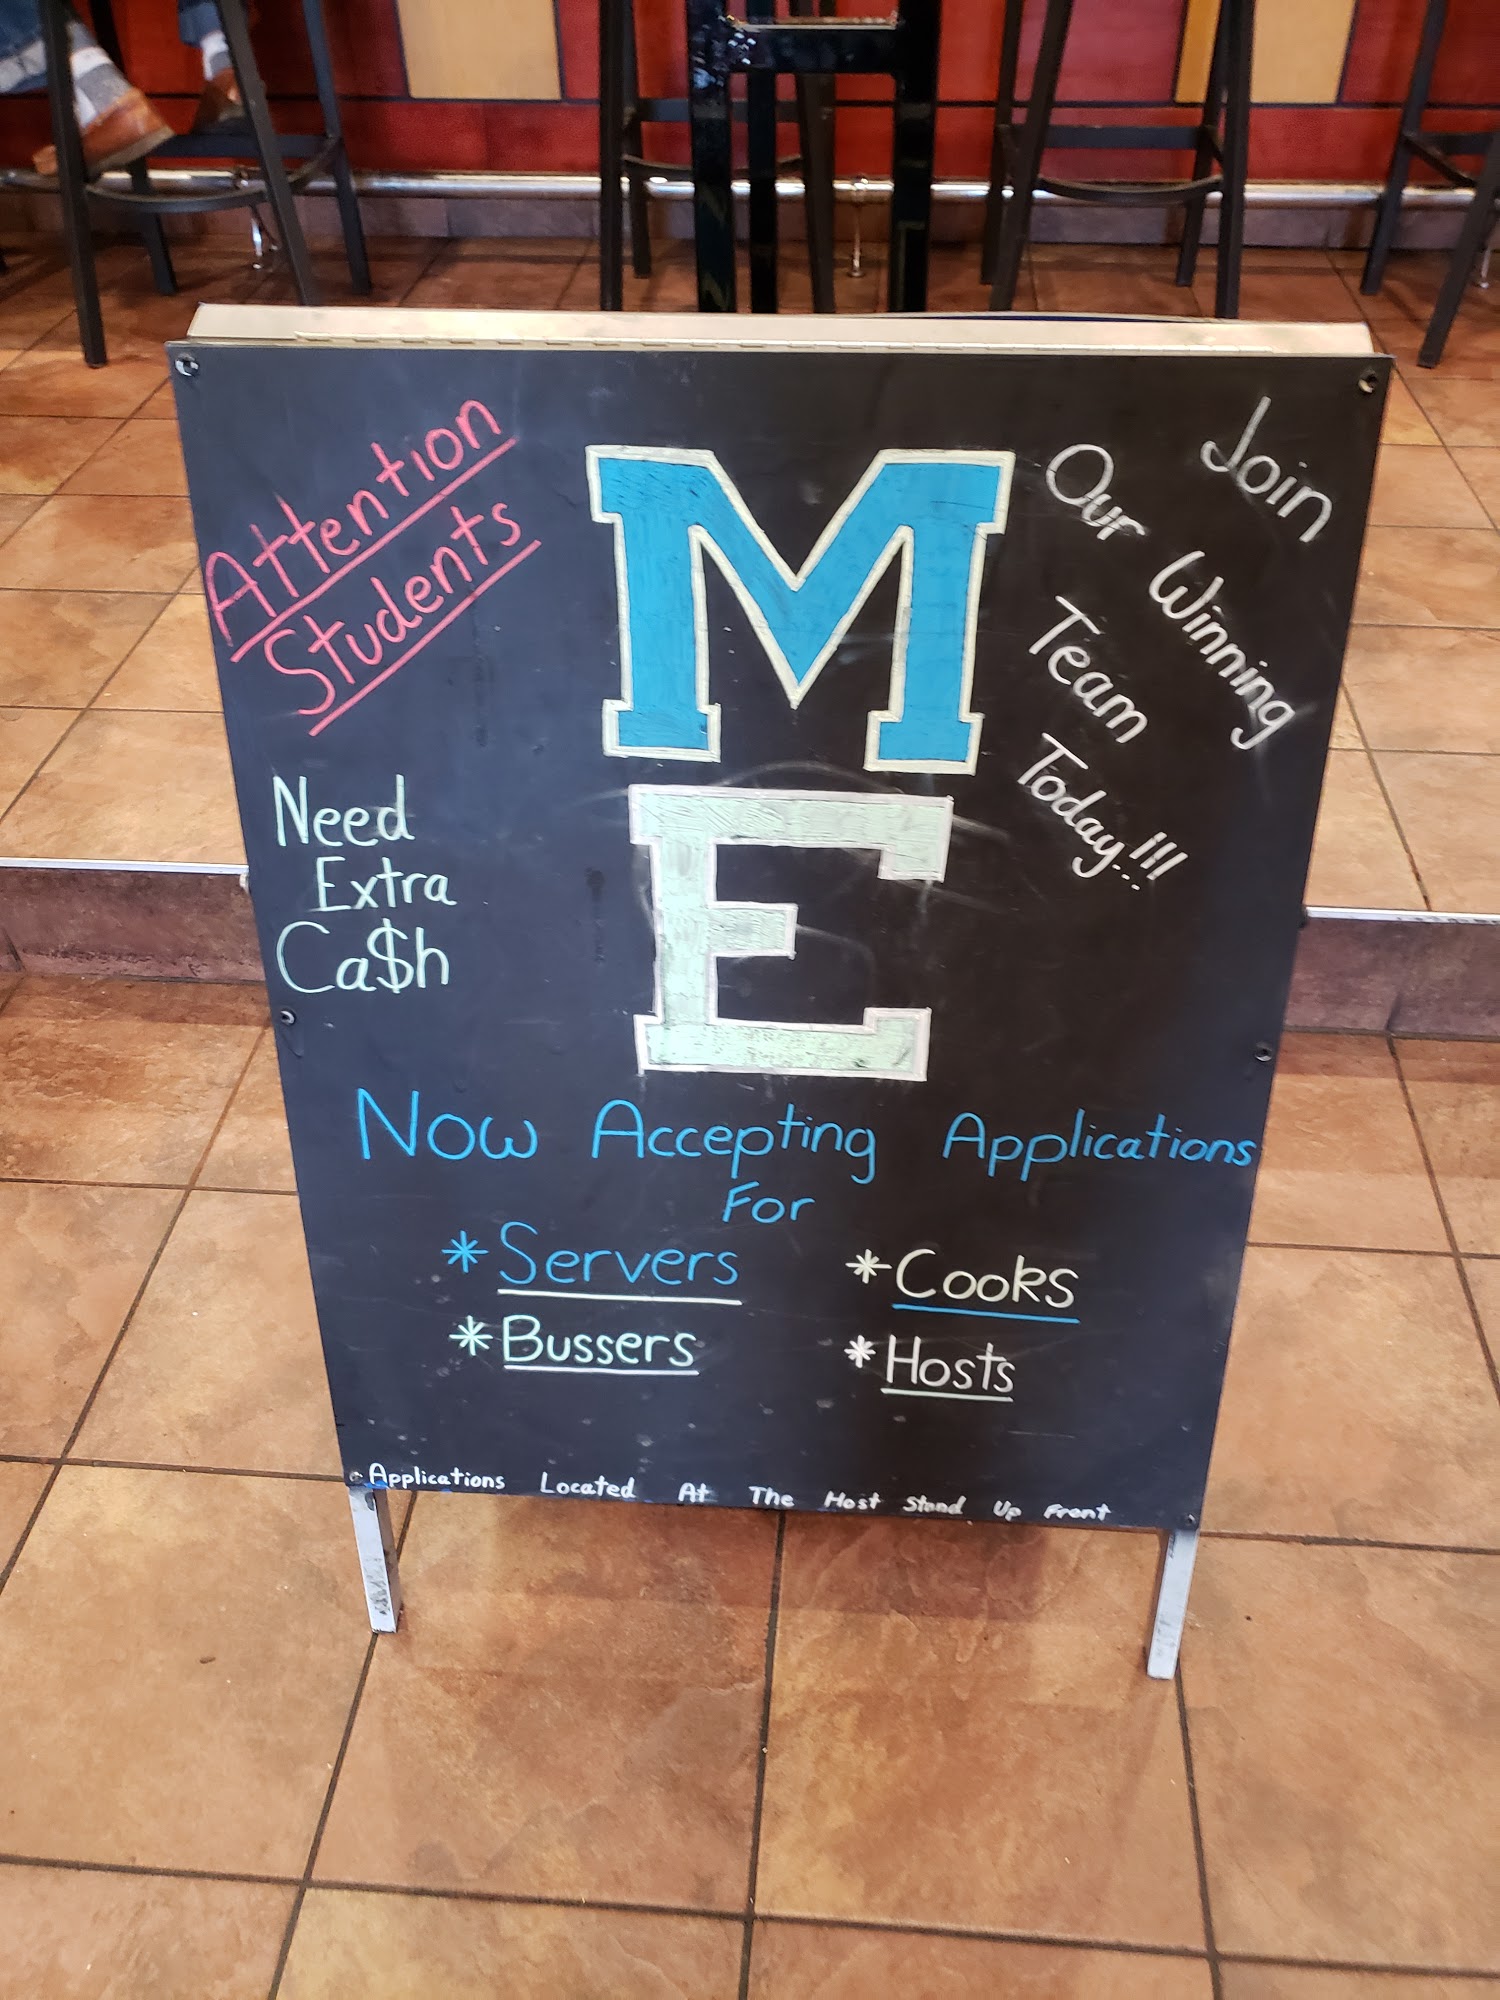 Attention
Students
M
E
Join
Our Winning
Team
Today!!!
Need
Extra
Ca$h
Now Accepting Applications
For
* Servers
* Cooks
* Bussers
* Hosts
Applications Located At The Host Stand Up Front